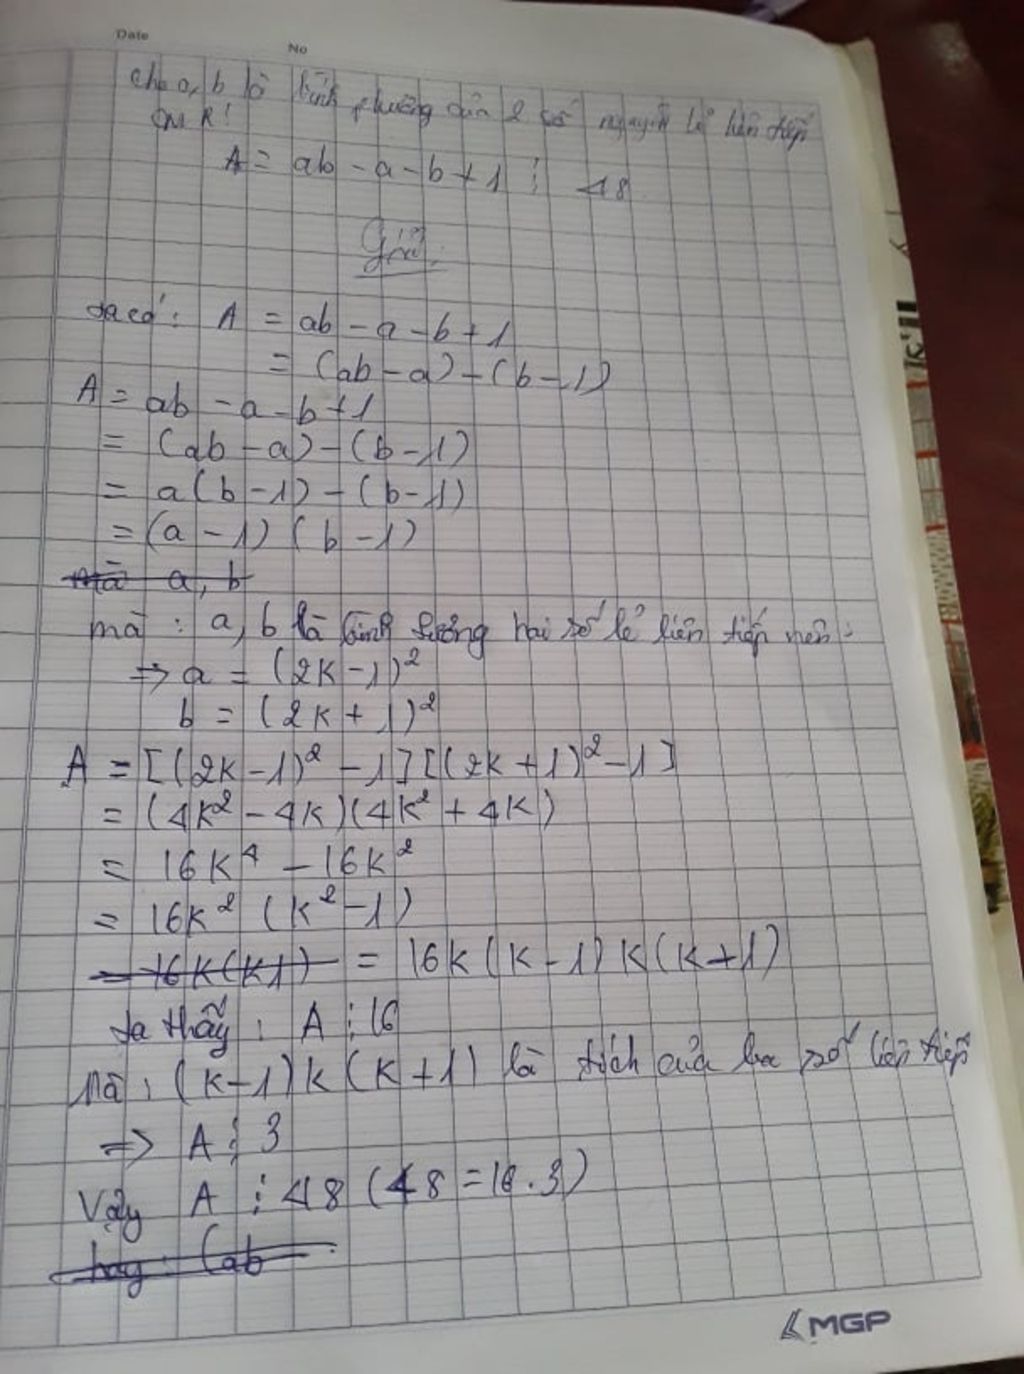 Date
No
cho a, b là bình phương của 2 số nguyên lẻ liên tiếp
CMR!
A = ab - a - b + 1 ⋮ 48
Giải:
ta có: A = ab - a - b + 1
= (ab - a) - (b - 1)
A = ab - a - b + 1
= (ab - a) - (b - 1)
= a(b - 1) - (b - 1)
= (a - 1) (b - 1)
mà a, b
mà : a, b là bình phương hai số lẻ liên tiếp nên:
=> a = (2K - 1)²
b = (2K + 1)²
A = [(2K - 1)² - 1] [(2K + 1)² - 1]
= (4K² - 4K)(4K² + 4K)
= 16K⁴ - 16K²
= 16K² (K² - 1)
= 16K(K1) = 16K(K - 1) K(K + 1)
ta thấy : A ⋮ 16
Mà : (K - 1) K (K + 1) là tích của ba số liên tiếp
=> A ⋮ 3
Vậy A ⋮ 48 (48 = 16 . 3)
hay : (ab
MGP